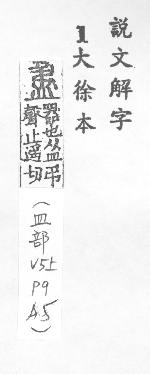 説文解字
1大徐本
器也从皿弔
聲止遙切
(皿部
V5上
P9
A5)